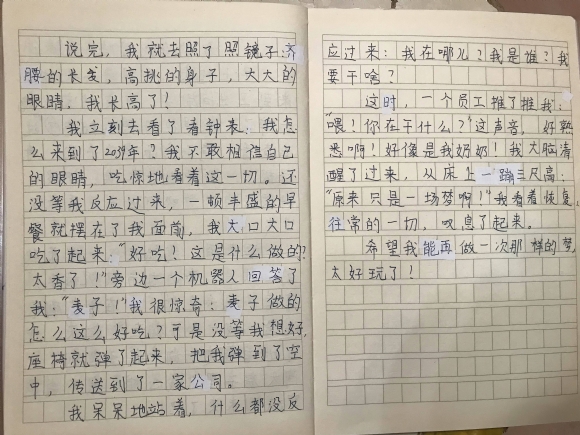 说完，我就去照了照镜子：齐
腰的长发，高挑的身子，大大的
眼睛，我长高了！
我立刻去看了看钟表：我怎
么来到了2039年？我不敢相信自己
的眼睛，吃惊地看着这一切。还
没等我反应过来，一顿丰盛的早
餐就摆在了我面前，我大口大口
吃了起来：“好吃！这是什么做的？
太香了！”旁边一个机器人回答了
我：“麦子！”我很惊奇：麦子做的
怎么这么好吃？可是没等我想好，
座椅就弹了起来，把我弹到了空
中，传送到了一家公司。
我呆呆地站着，什么都没反
应过来：我在哪儿？我是谁？我
要干啥？
这时，一个员工推了推我：
“喂！你在干什么？”这声音，好熟
悉啊！好像是我奶奶！我大脑清
醒了过来，从床上一蹦三尺高：
“原来只是一场梦啊！”我看着恢复
往常的一切，叹息了起来。
希望我能再做一次那样的梦，
太好玩了！